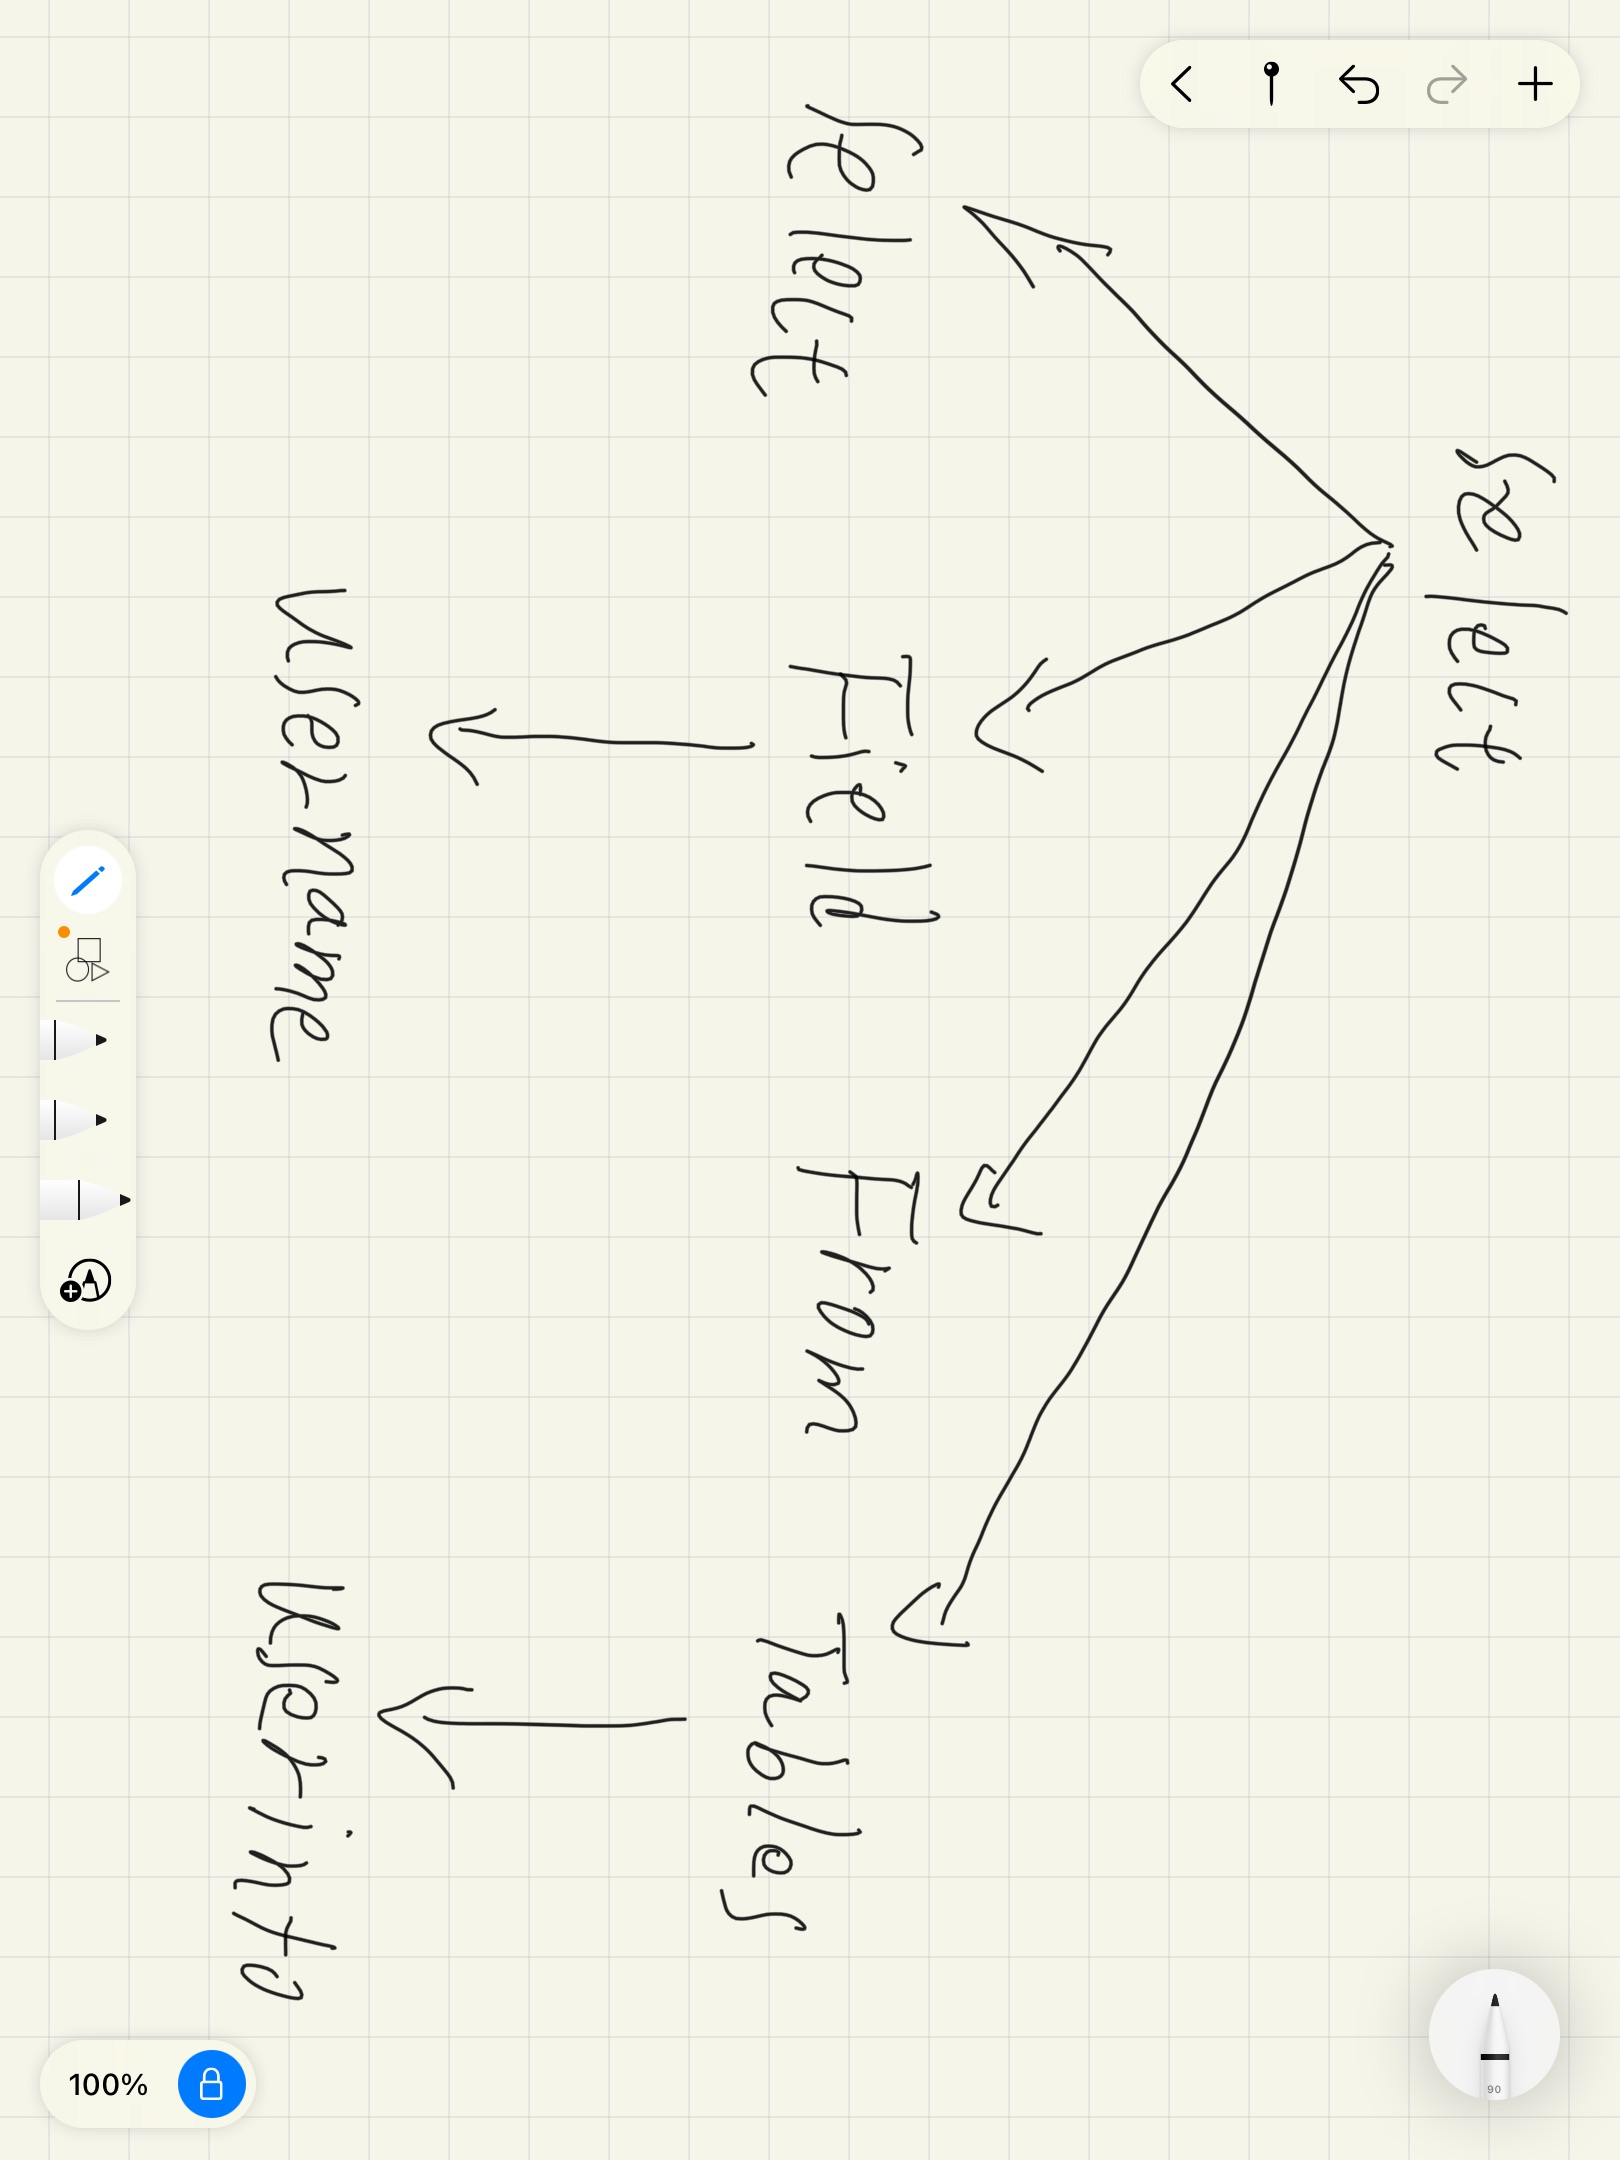 Select
Select Field From Tables
Username
Userinfo
90
100%